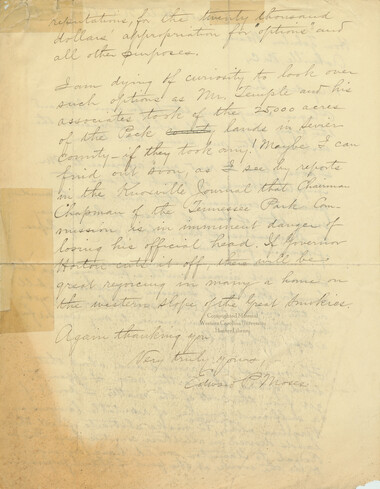 reputations, for the twenty thousand
dollars' appropriation for "options" and
all other purposes.
I am dying of curiosity to look over
such options as Mr. Temple and his
associates took of the 25,000 acres
of the Peck lands in Sevier
County—if they took any! Maybe I can
find out soon, as I see by reports
in the Knoxville Journal that Chairman
Chapman of the Tennessee Park Com-
mission is in imminent danger of
losing his official head. If Governor
Horton cuts it off, there will be
great rejoicing in many a home on
the western slope of the Great Smokies.
Again thanking you,
Very truly yours,
Edward P. Moses
Copyrighted Material
Western Carolina University
Hunter Library